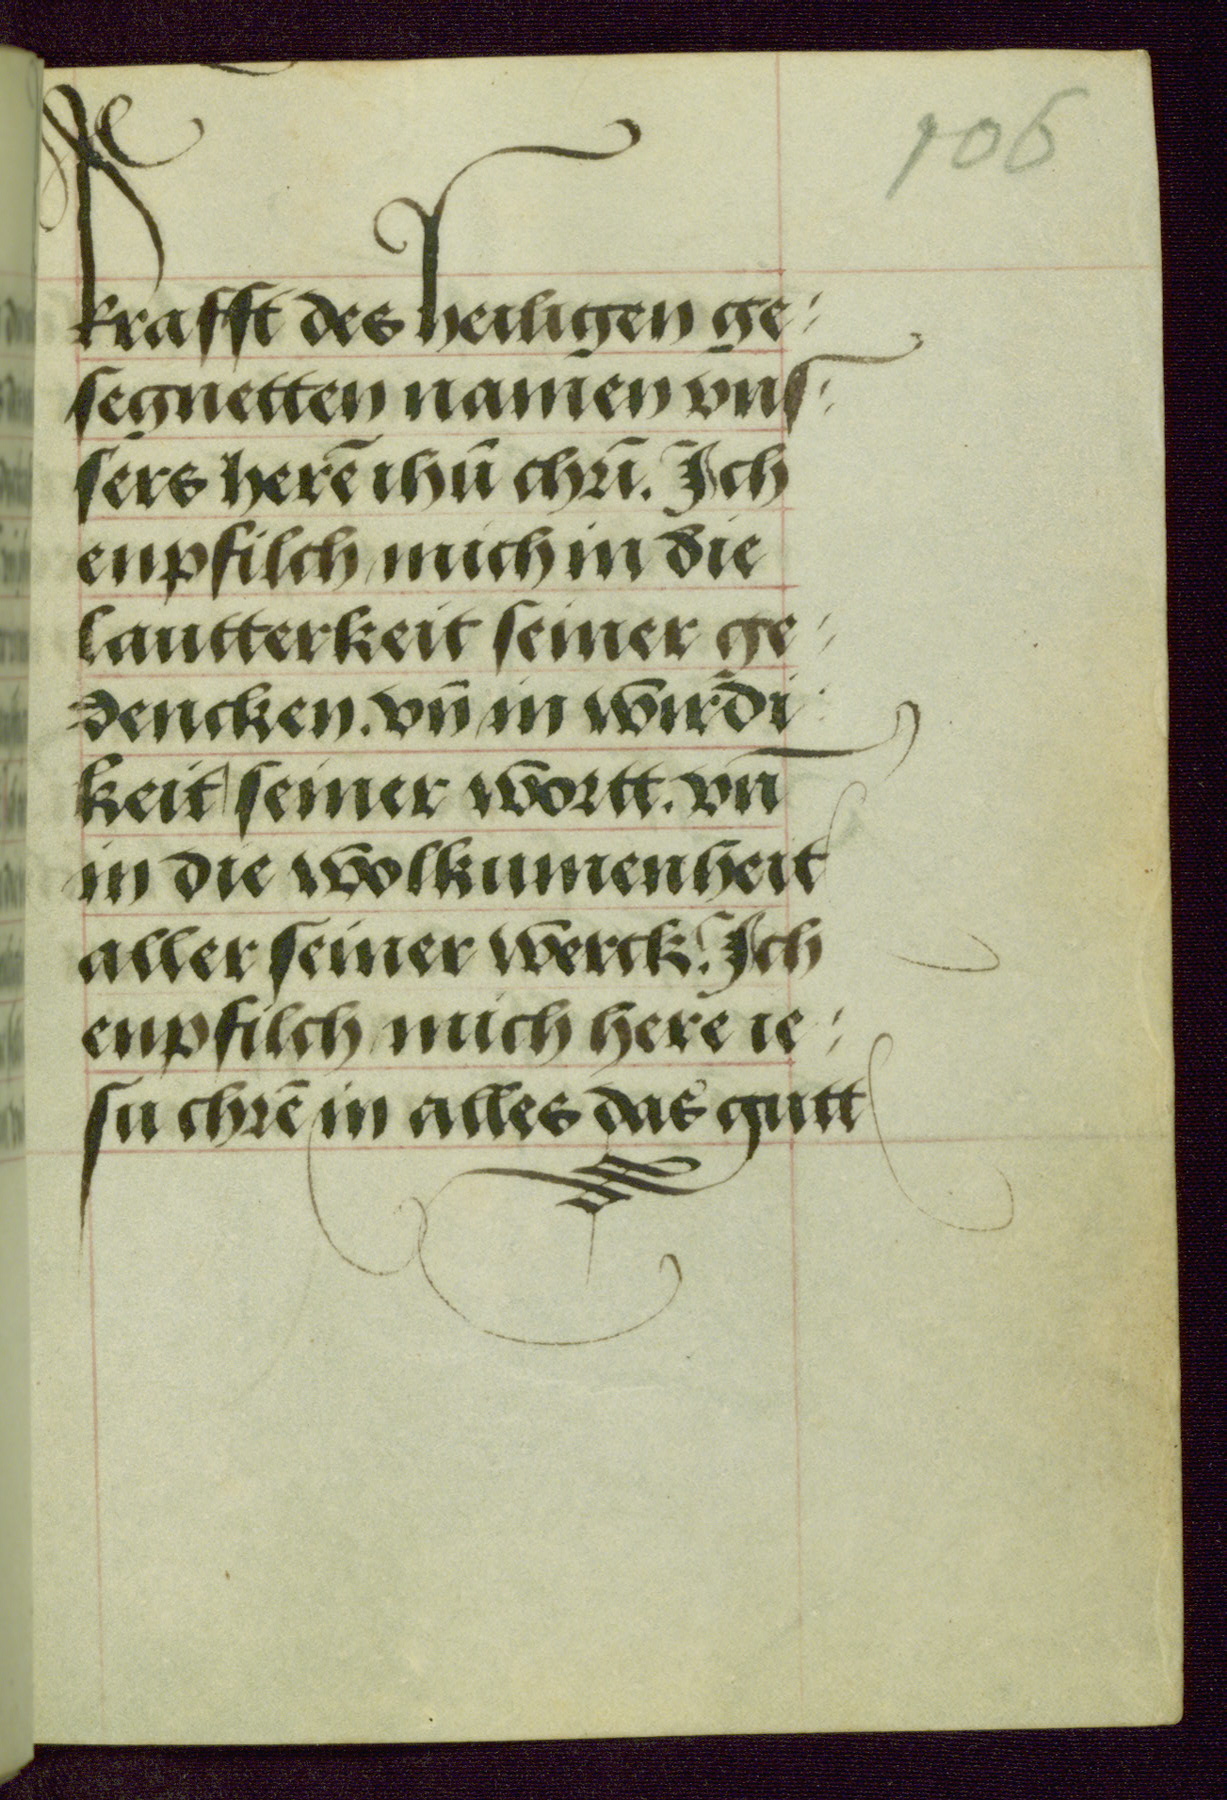 106
krafft des heiligen ge:
segnetten namen vns:
sers herē ihū chrī. Ich
enpfilch mich in die
lautterkeit seiner ge:
dencken. vn̄ in wirdi:
keit seiner wortt. vn̄
in die wolkumenheit
aller seiner werck. Ich
enpfilch mich here ie:
su chrē in alles das gutt